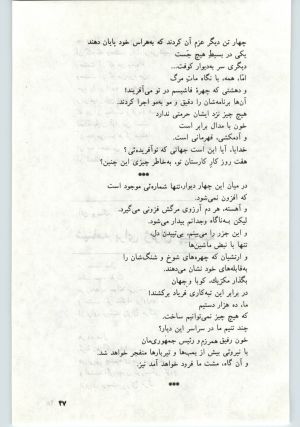 چهار تن دیگر عزم آن کردند که به‌هراس خود پایان دهند
یکی در بسیط هیچ جَست
دیگری سر به‌دیوار کوفت...
امّا، همه، با نگاه ماتِ مرگ
و دهشتی که چهرهٔ فاشیسم در تو می‌آفریند!
آن‌ها برنامه‌شان را دقیق و مو به‌مو اجرا کردند.
هیچ چیز نزد ایشان حرمتی ندارد
خون با مدال برابر است
و آدمکشی، قهرمانی است.
خدایا، آیا این است جهانی که توآفریده‌ئی؟
هفت روز کار کارستان تو، به‌خاطر چیزی این چنین؟
***
در میان این چهار دیوار، تنها شماره‌ئی موجود است
که افزون نمی‌شود.
و آهسته، هر دم آرزوی مرگش فزونی می‌گیرد.
لیکن به‌ناگاه وجدانم بیدار می‌شود.
و این جزر را می‌بینم، بی‌تپیدن دل،
تنها با نبض ماشین‌ها
و ارتشیان که چهره‌های شوخ و شنگ‌شان را
به‌قابله‌های خود نشان می‌دهند.
بگذار مکزیك، کوبا و جهان
در برابر این تبه‌کاری فریاد برکشند!
ما، ده هزار دستیم
که هیچ چیز نمی‌توانیم ساخت.
چند تنیم ما در سراسر این دیار؟
خون رفیق همرزم و رئیس جمهوری‌مان
با نیروئی بیش از بمب‌ها و تیربارها منفجر خواهد شد.
و آن گاه، مشت ما فرود خواهد آمد نیز.
***
۴۷